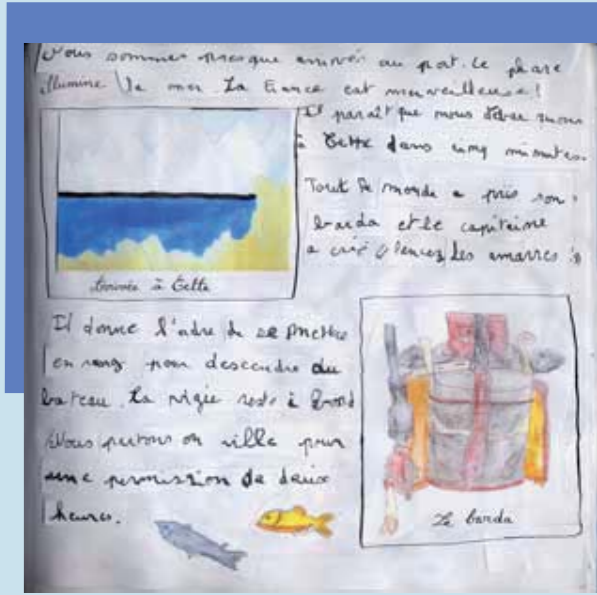 Nous sommes presque arrivés au port. Le phare
illumine la mer La France est merveilleuse!
Il paraît que nous débarquons
à Cette dans cinq minutes.
Tout le monde a pris son
barda et le capitaine
a crié "lancez les amarres"
Arrivée à Cette
Il donne l'odre de se mettre
en rang pour descendre du
bateau. La vigie reste à bord
Nous partons en ville pour
une permission de deux
heures.
Le barda